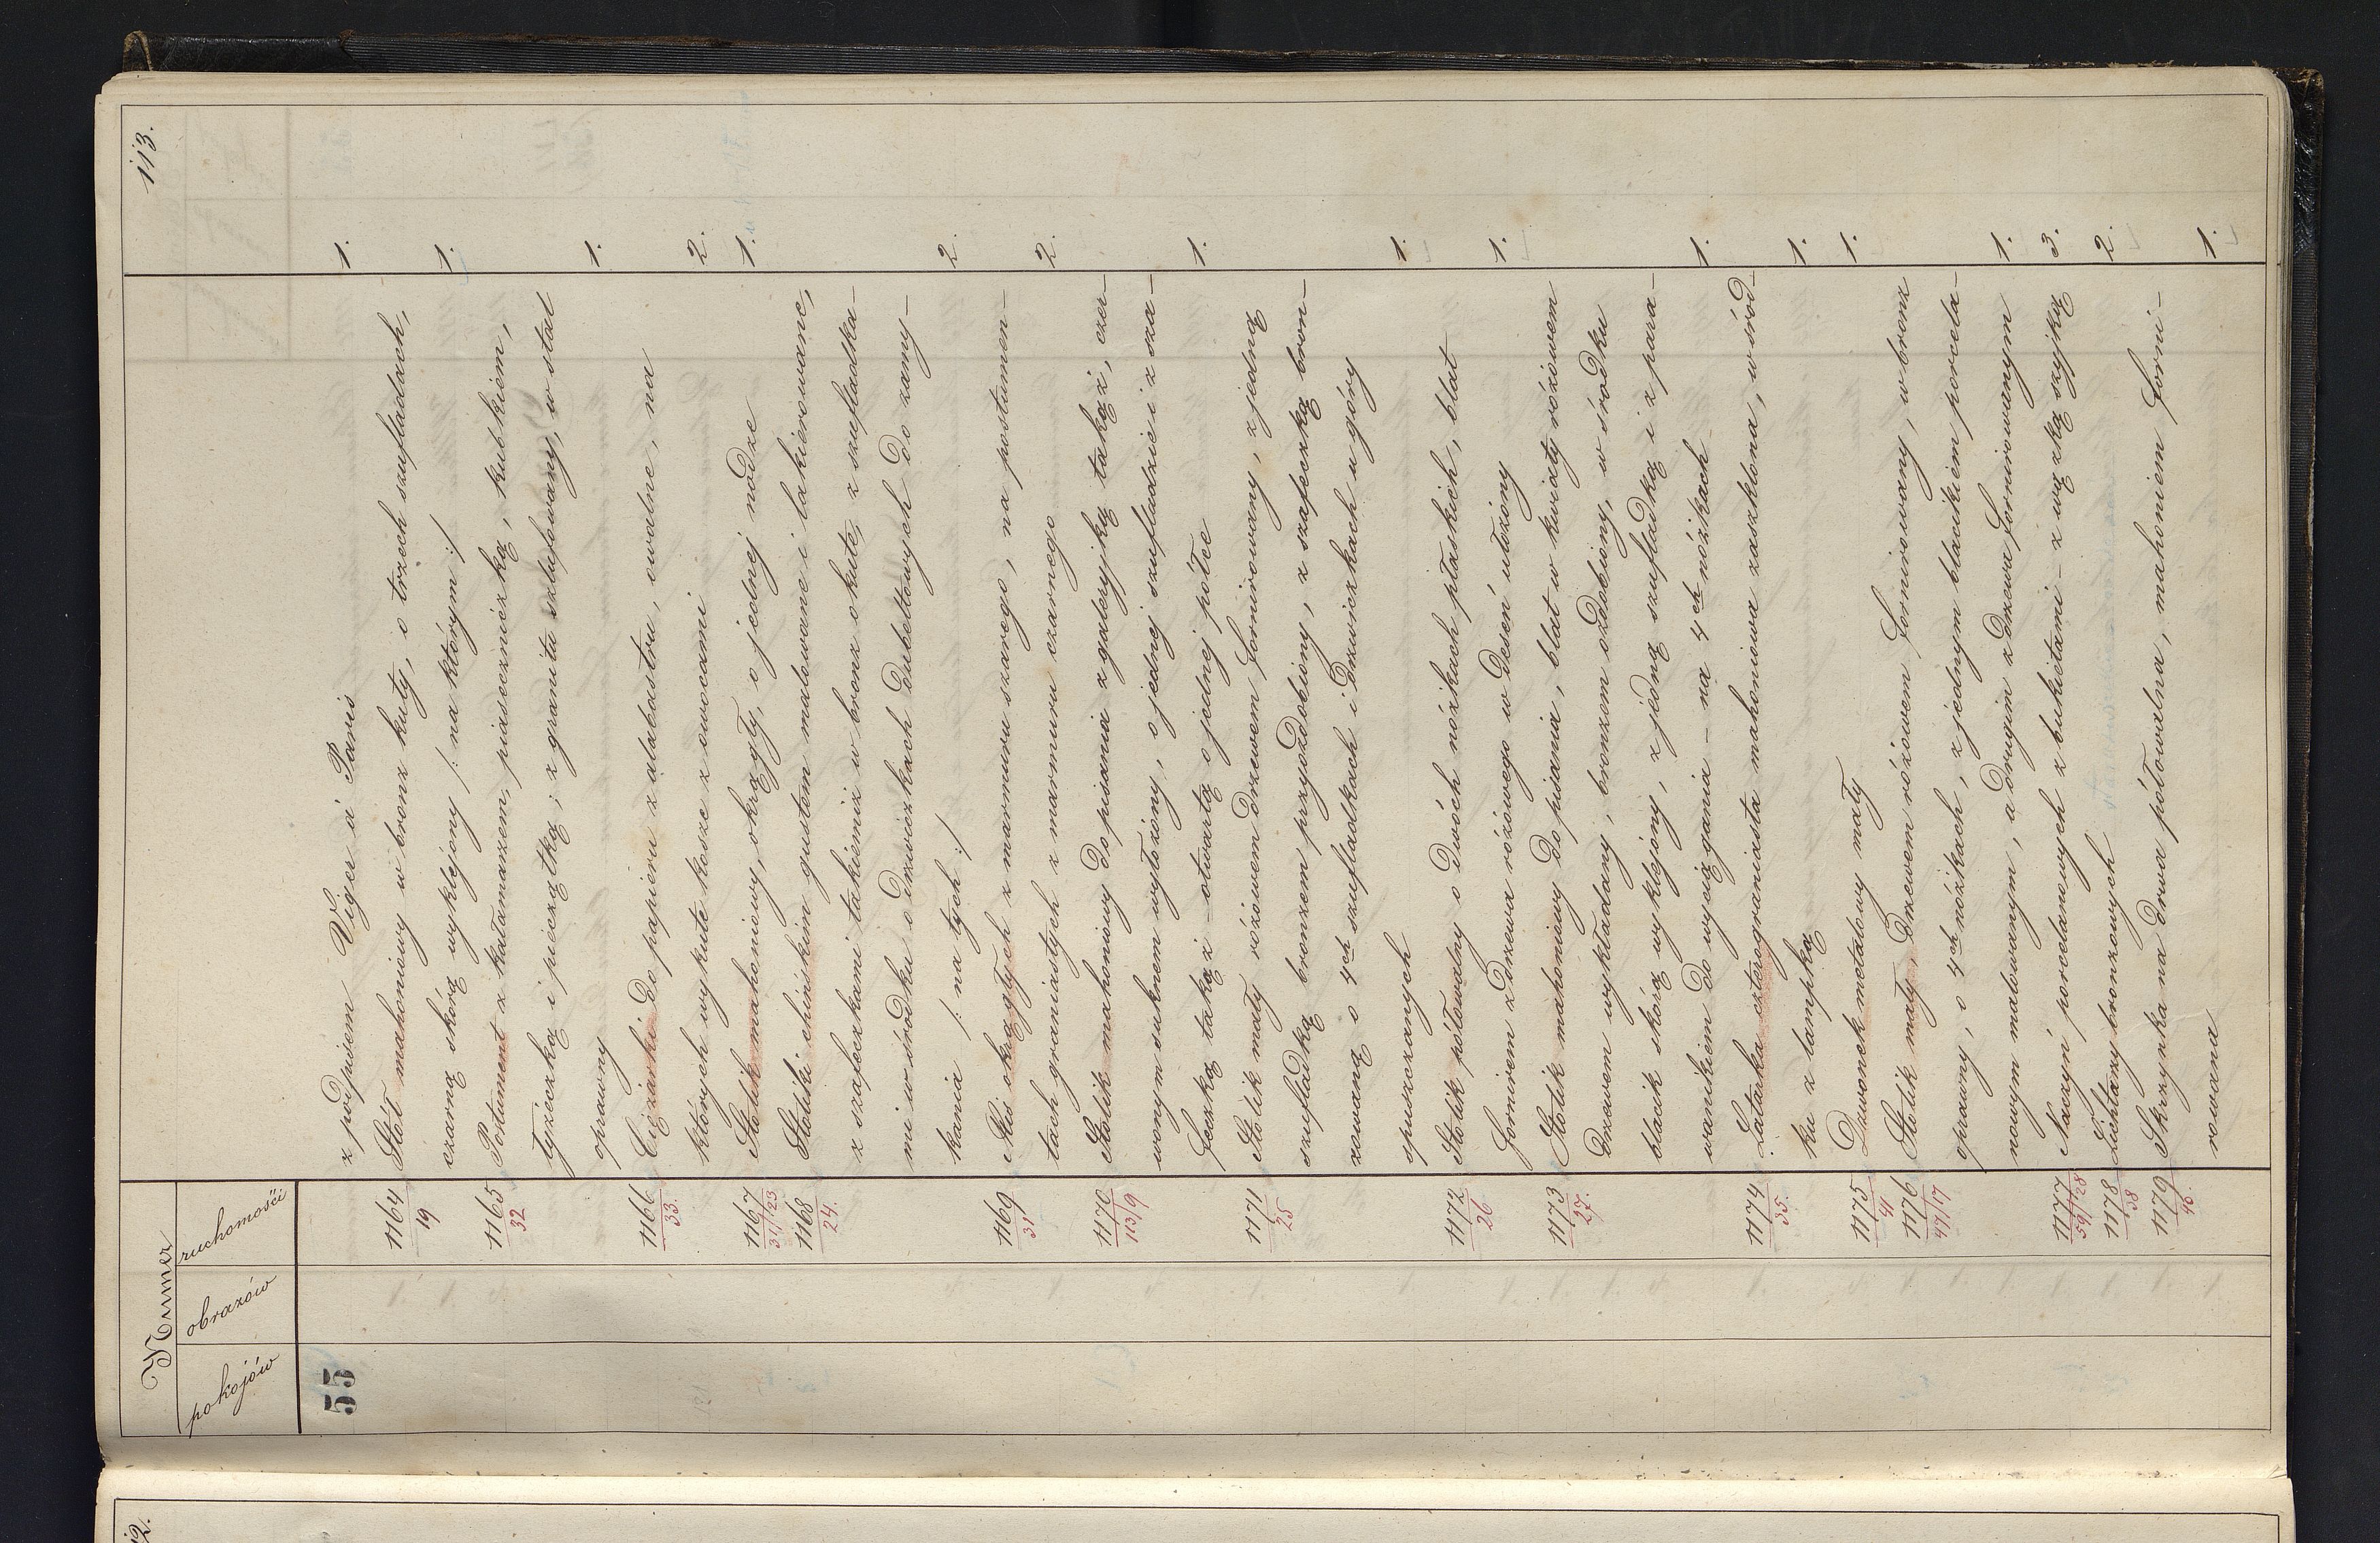 113.
Numer
pokojów obrazów ruchomości
55 z podpisem Viger á Paris 1.
1164/19 Stół mahoniowy w bronz kuty, o trzech szufladach,
czarną skórą wyklejony /: na którym :/ 1.
1165/32 Postument z kałamarzem, piaseczniczką, kubkiem,
łyżeczką i pieczątką; z granitu szlufowany, w stal
oprawny 1.
1166/33. Ciężarki do papieru z alabastru, owalne, na
których wykute kosze z owocami 2.
1167/31/23 Stolik mahoniowy, okrągły, o jednej nodze 1.
1168/24. Stoliki chińskim gustem malowane i lakierowane,
z szafeczkami takiemiż w bronz okute, z szufladka-
mi w środku o drzwiczkach dubeltowych do zamy-
kania /: na tych :/ 2.
1169/31 Mis okrągłych z marmuru szarego, na postumen-
tach graniastych z marmuru czarnego 2.
1170/113/9 Stolik mahoniowy do pisania z galeryjką takąż, czer-
wonym suknem wyłożony, o jednej szufladzie i z sza-
feczką takąż otwartą o jednej półce 1.
1171/25 Stolik mały różowem drzewem fornirowany, z jedną
szufladką bronzem przyozdobiony, z szafeczką bron-
zowaną o 4ch szufladkach i drzwiczkach u góry
spuszczanych 1.
1172/26 Stolik półowalny o dwóch nóżkach płaskich, blat
fornirem z drzewa różowego w deseń ułożony 1.
1173/27. Stolik mahoniowy do pisania, blat w kwiaty różowem
drzewem wykładany, bronzem ozdobiony, w środku
blacik skórą wyklejony, z jedną szufladką i z para-
wanikiem do wyciągania – na 4ch nóżkach 1.
1174/35. Latarka czterograniasta mahoniowa zaszklona, w środ-
ku z lampką 1.
1175/41 Dzwonek metalowy mały 1.
1176/47/17 Stolik mały, drzewem różowem fornirowany, w bronz
oprawny, o 4ch nóżkach, z jednym blacikiem porcela-
nowym malowanym, a drugim z drzewa fornirowanym 1.
1177/59/28 Naczyń porcelanowych z bukietami – z wązką szyjką 3.
1178/38 Lichtarzy bronzowych 2.
1179/46. Skrzynka na drwa półowalna, mahoniem forni-
rowana 1.